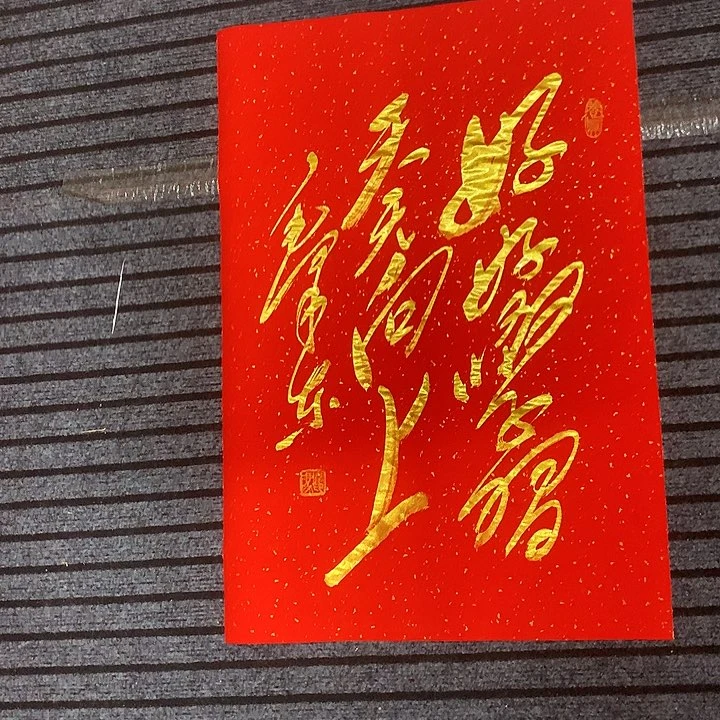 好好学习
天天向上
毛泽东